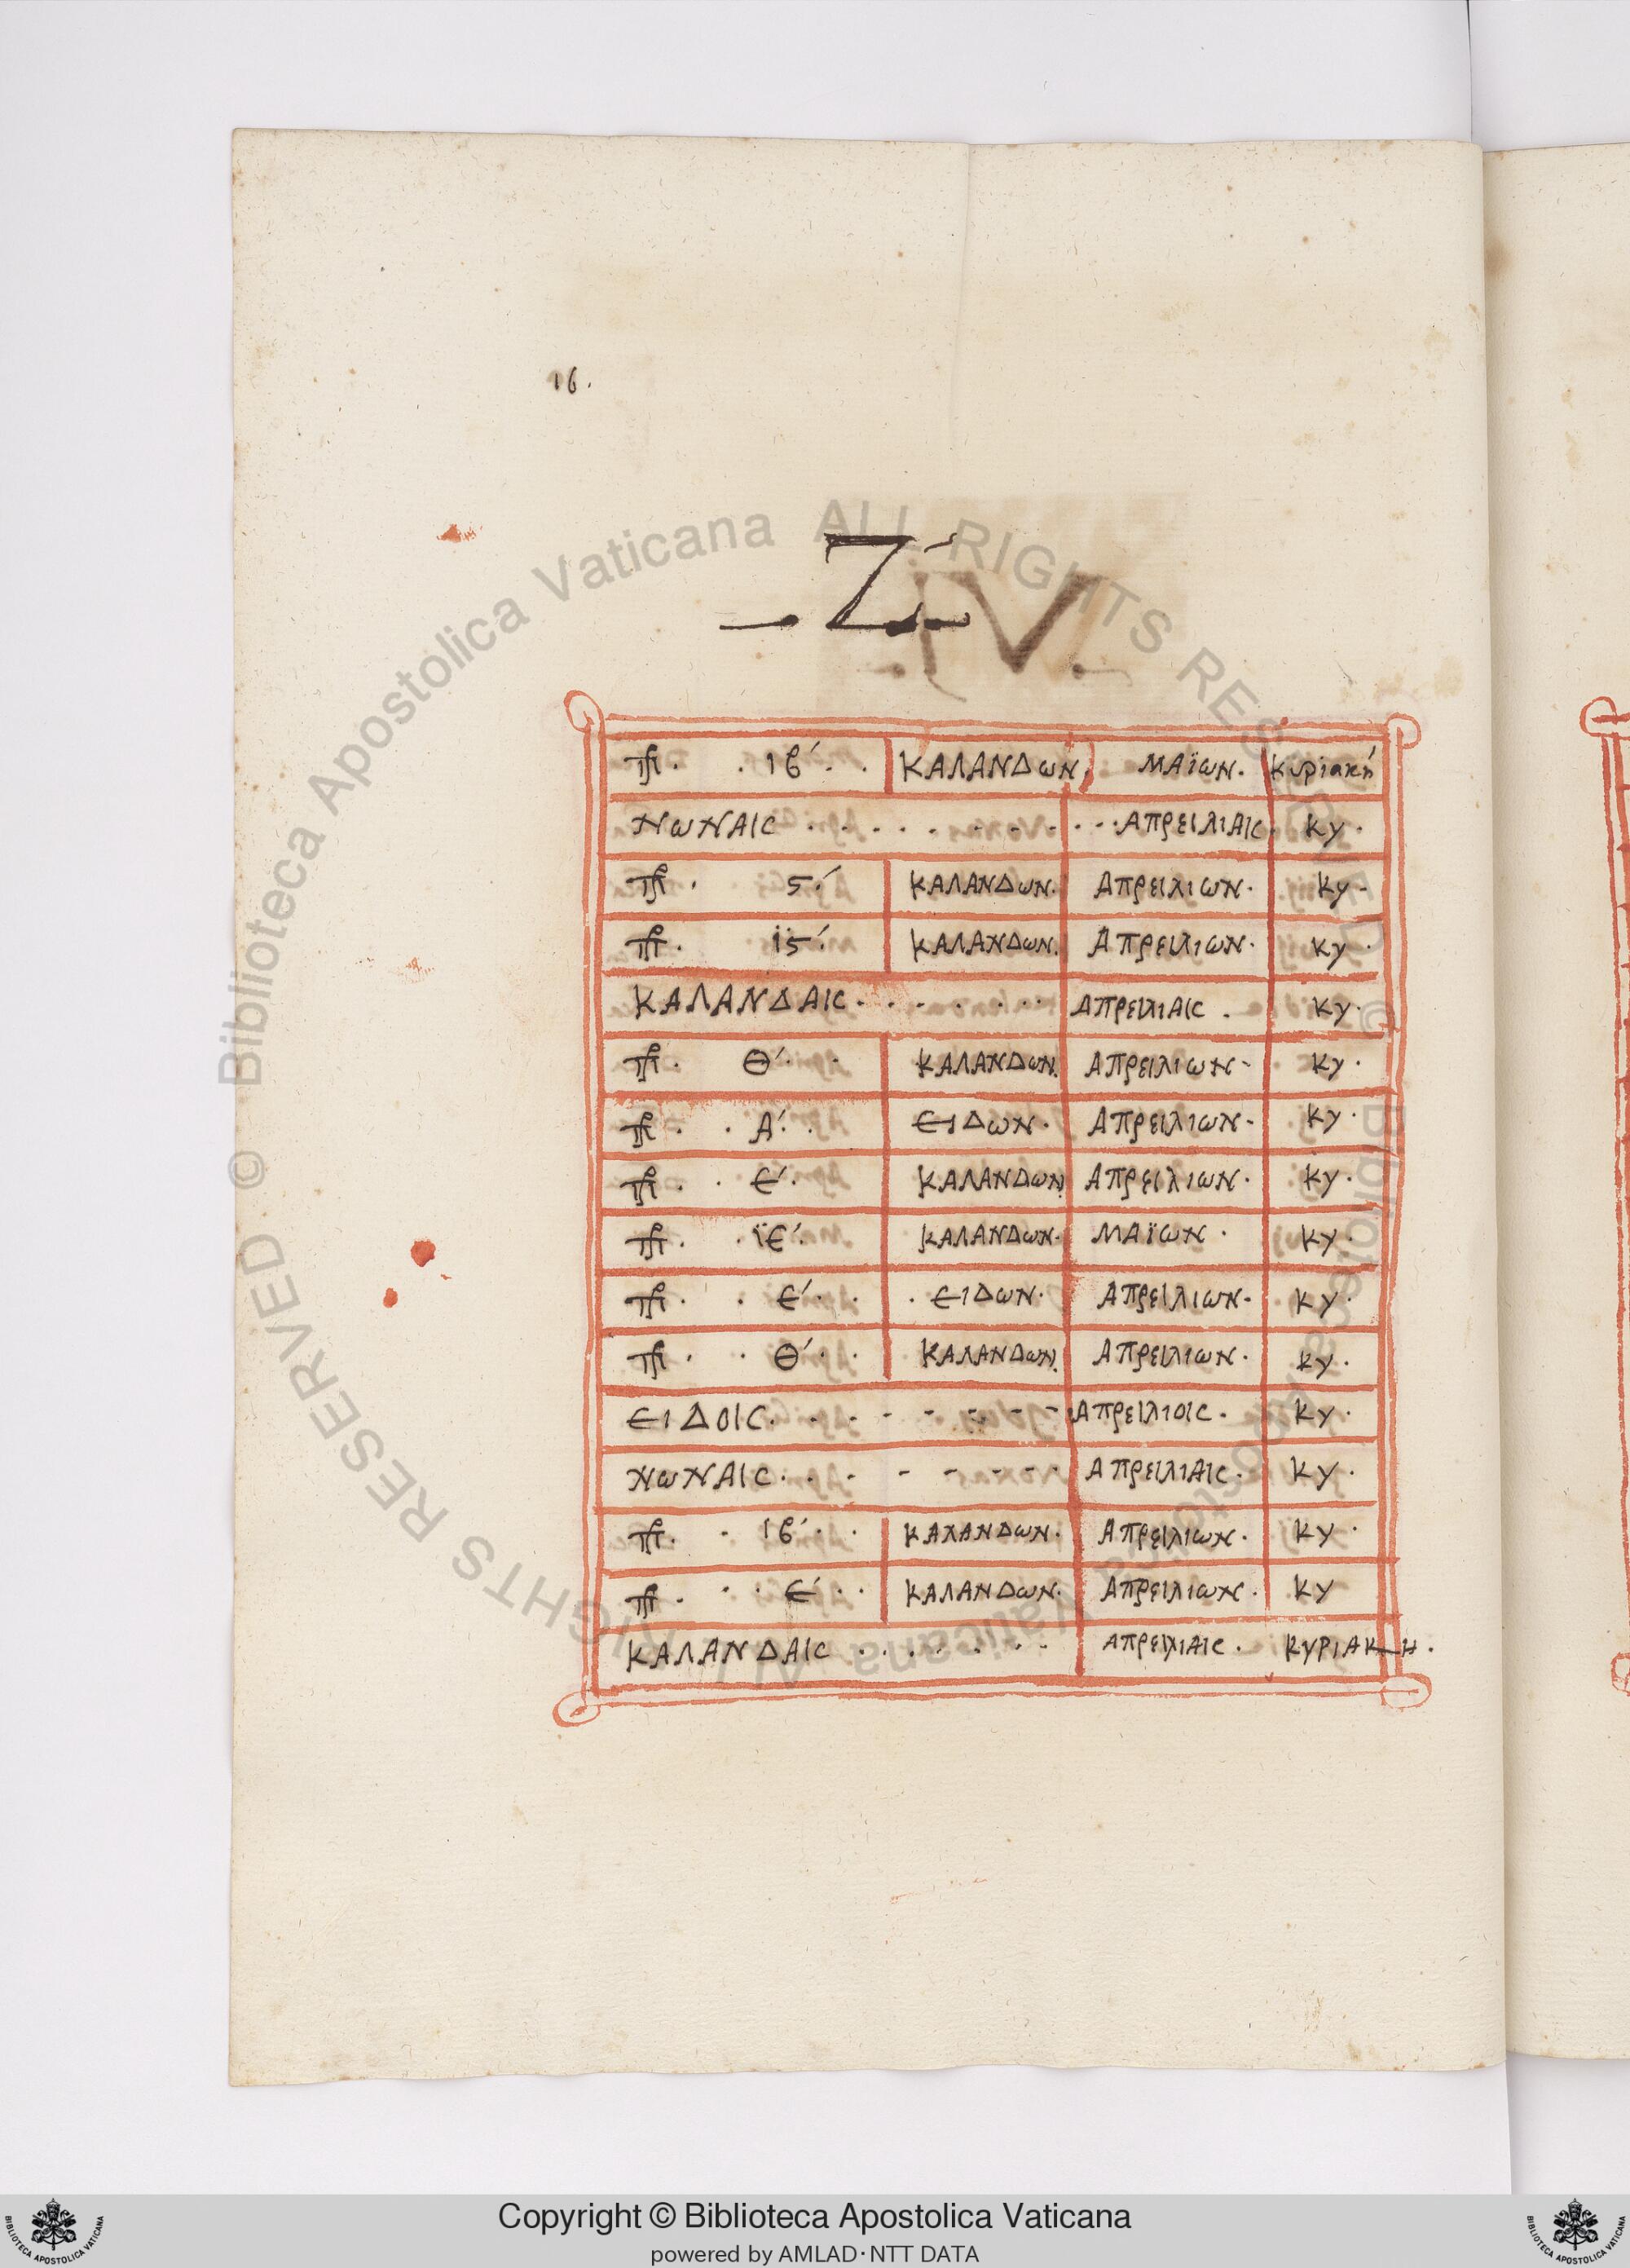 16.
Ζ´
ΙV.
πρ. · ιβ´ · · ΚΑΛΑΝΔωΝ. ΜΑΪωΝ. κυριακή
ΝωΝΑΙC · · · · · · · · · · ΑπρειλιΑΙC. Κυ ·
πρ. ϛ´ ΚΑΛΑΝΔωΝ. ΑπρειλιωΝ. Κυ -
πρ. ϊϛ´ ΚΑΛΑΝΔωΝ. ΑπρειλιωΝ. Κυ ·
ΚΑΛΑΝΔΑΙC · · · · · · · ΑπρειλιΑΙC . Κυ ·
πρ. Θ´ · · ΚΑΛΑΝΔωΝ. ΑπρειλιωΝ - Κυ ·
πρ. · Α´ · · ΕΙΔωΝ. ΑπρειλιωΝ - Κυ ·
πρ. · Ε´ · ΚΑΛΑΝΔωΝ. ΑπρειλιωΝ. Κυ ·
πρ. · ϊΕ´ ΚΑΛΑΝΔωΝ. ΜΑΪωΝ . Κυ ·
πρ. · Ε´ · · · ΕΙΔωΝ. ΑπρειλιωΝ. Κυ ·
πρ. · Θ´ · · ΚΑΛΑΝΔωΝ. ΑπρειλιωΝ. Κυ ·
ΕΙΔΟΙC · · · - - - - - - Απρειλιοιc . Κυ ·
ΝωΝΑΙC · · · - - - - - ΑπρειλιΑΙC . Κυ ·
πρ. · ιβ´ · · ΚΑΛΑΝΔωΝ. ΑπρειλιωΝ. Κυ ·
πρ. · · Ε´ · · ΚΑΛΑΝΔωΝ. ΑπρειλιωΝ . Κυ
ΚΑΛΑΝΔΑΙC · · · · · · · ΑπρειλιΑΙC . ΚΥΡΙΑΚΗ .
© Biblioteca Apostolica Vaticana ALL RIGHTS RESERVED
© Biblioteca Apostolica Vaticana ALL RIGHTS RESERVED
Copyright © Biblioteca Apostolica Vaticana
powered by AMLAD·NTT DATA
BIBLIOTECA APOSTOLICA VATICANA
BIBLIOTECA APOSTOLICA VATICANA